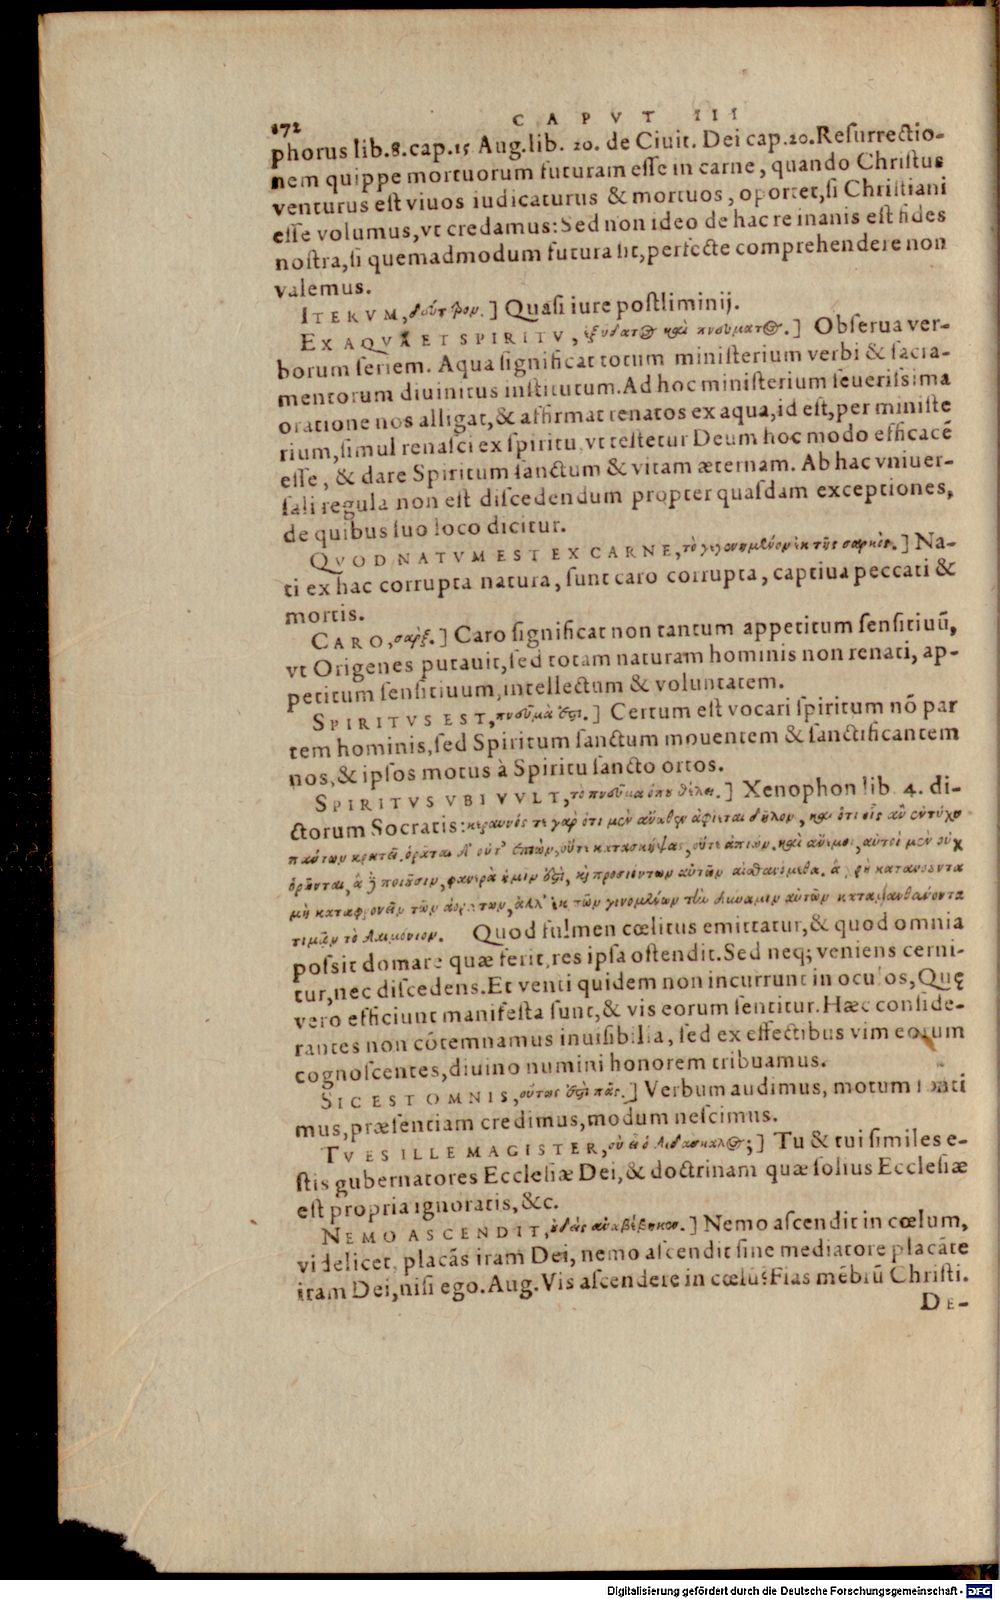 172 CAPVT III
phorus lib.8.cap.15 Aug.lib. 20. de Ciuit. Dei cap.20.Reſurrectio-
nem quippe mortuorum futuram eſſe in carne, quando Chriſtus
venturus eſt viuos iudicaturus & mortuos, oportet,ſi Chriſtiani
eſſe volumus,vt credamus:Sed non ideo de hac re inanis eſt fides
noſtra,ſi quemadmodum futura ſit,perfecte comprehendere non
valemus.
ITERVM, δεύτερον.] Quaſi iure poſtliminij.
EX AQVA ET SPIRITV, ἐξ ὕδατος καὶ πνεύματος.] Obſerua ver-
borum ſeriem. Aqua ſignificat totum miniſterium verbi & ſacra-
mentorum diuinitus inſtitutum.Ad hoc miniſterium ſeueriſsima
oratione nos alligat,& affirmat renatos ex aqua,id eſt,per miniſte
rium,ſimul renaſci ex ſpiritu,vt teſtetur Deum hoc modo efficacē
eſſe, & dare Spiritum ſanctum & vitam æternam. Ab hac vniuer-
ſali regula non eſt diſcedendum propter quaſdam exceptiones,
de quibus ſuo loco dicitur.
QVOD NATVM EST EX CARNE, τὸ γεγεννημένον ἐκ τῆς σαρκὸς.] Na-
ti ex hac corrupta natura, ſunt caro corrupta, captiua peccati &
mortis.
CARO, σαρξ.] Caro ſignificat non tantum appetitum ſenſitiuū,
vt Origenes putauit,ſed totam naturam hominis non renati, ap-
petitum ſenſitiuum,intellectum & voluntatem.
SPIRITVS EST, πνεῦμά ἐστι.] Certum eſt vocari ſpiritum nō par
tem hominis,ſed Spiritum ſanctum mouentem & ſanctificantem
nos,& ipſos motus à Spiritu ſancto ortos.
SPIRITVS VBI VVLT, τὸ πνεῦμα ὅπου θέλει.] Xenophon lib 4. di-
ctorum Socratis: κεραυνός τε γὰρ ὅτι μὲν ἄνωθεν ἀφίεται δῆλον, καὶ ὅτι οἷς ἂν ἐντύχῃ
πάντων κρατεῖ, ὁρᾶται δ' οὔτ' ἐπιὼν, οὔτε κατασκήψας, οὔτε ἀπιών. καὶ ἄνεμοι, αὐτοὶ μὲν οὐχ
ὁρῶνται, ἃ δὲ ποιοῦσιν, φανερὰ ἡμῖν ἐστὶ, καὶ προσιόντων αὐτῶν αἰσθανόμεθα. ἃ χρὴ κατανοοῦντα
μὴ καταφρονεῖν τῶν ἀοράτων, ἀλλ' ἐκ τῶν γινομένων τὴν δύναμιν αὐτῶν καταμανθάνοντα
τιμᾶν τὸ δαιμόνιον. Quod fulmen cœlitus emittatur,& quod omnia
poſsit domare quæ ferit,res ipſa oſtendit.Sed neq; veniens cerni-
tur,nec diſcedens.Et venti quidem non incurrunt in oculos,Quę
vero efficiunt manifeſta ſunt,& vis eorum ſentitur.Hæc conſide-
rantes non cōtemnamus inuiſibilia, ſed ex effectibus vim eorum
cognoſcentes,diuino numini honorem tribuamus.
SIC EST OMNIS, οὕτως ἐστὶ πᾶς.] Verbum audimus, motum ſenti
mus,præſentiam credimus,modum neſcimus.
TV ES ILLE MAGISTER, σὺ εἶ ὁ διδάσκαλος;] Tu & tui ſimiles e-
ſtis gubernatores Eccleſiæ Dei,& doctrinam quæ ſolius Eccleſiæ
eſt propria ignoratis,&c.
NEMO ASCENDIT, οὐδεὶς ἀναβέβηκεν.] Nemo aſcendit in cœlum,
videlicet, placās iram Dei, nemo aſcendit ſine mediatore placāte
iram Dei,niſi ego.Aug.Vis aſcendere in cœlū?Fias mēbrū Chriſti.
DE-
Digitalisierung gefördert durch die Deutsche Forschungsgemeinschaft - DFG